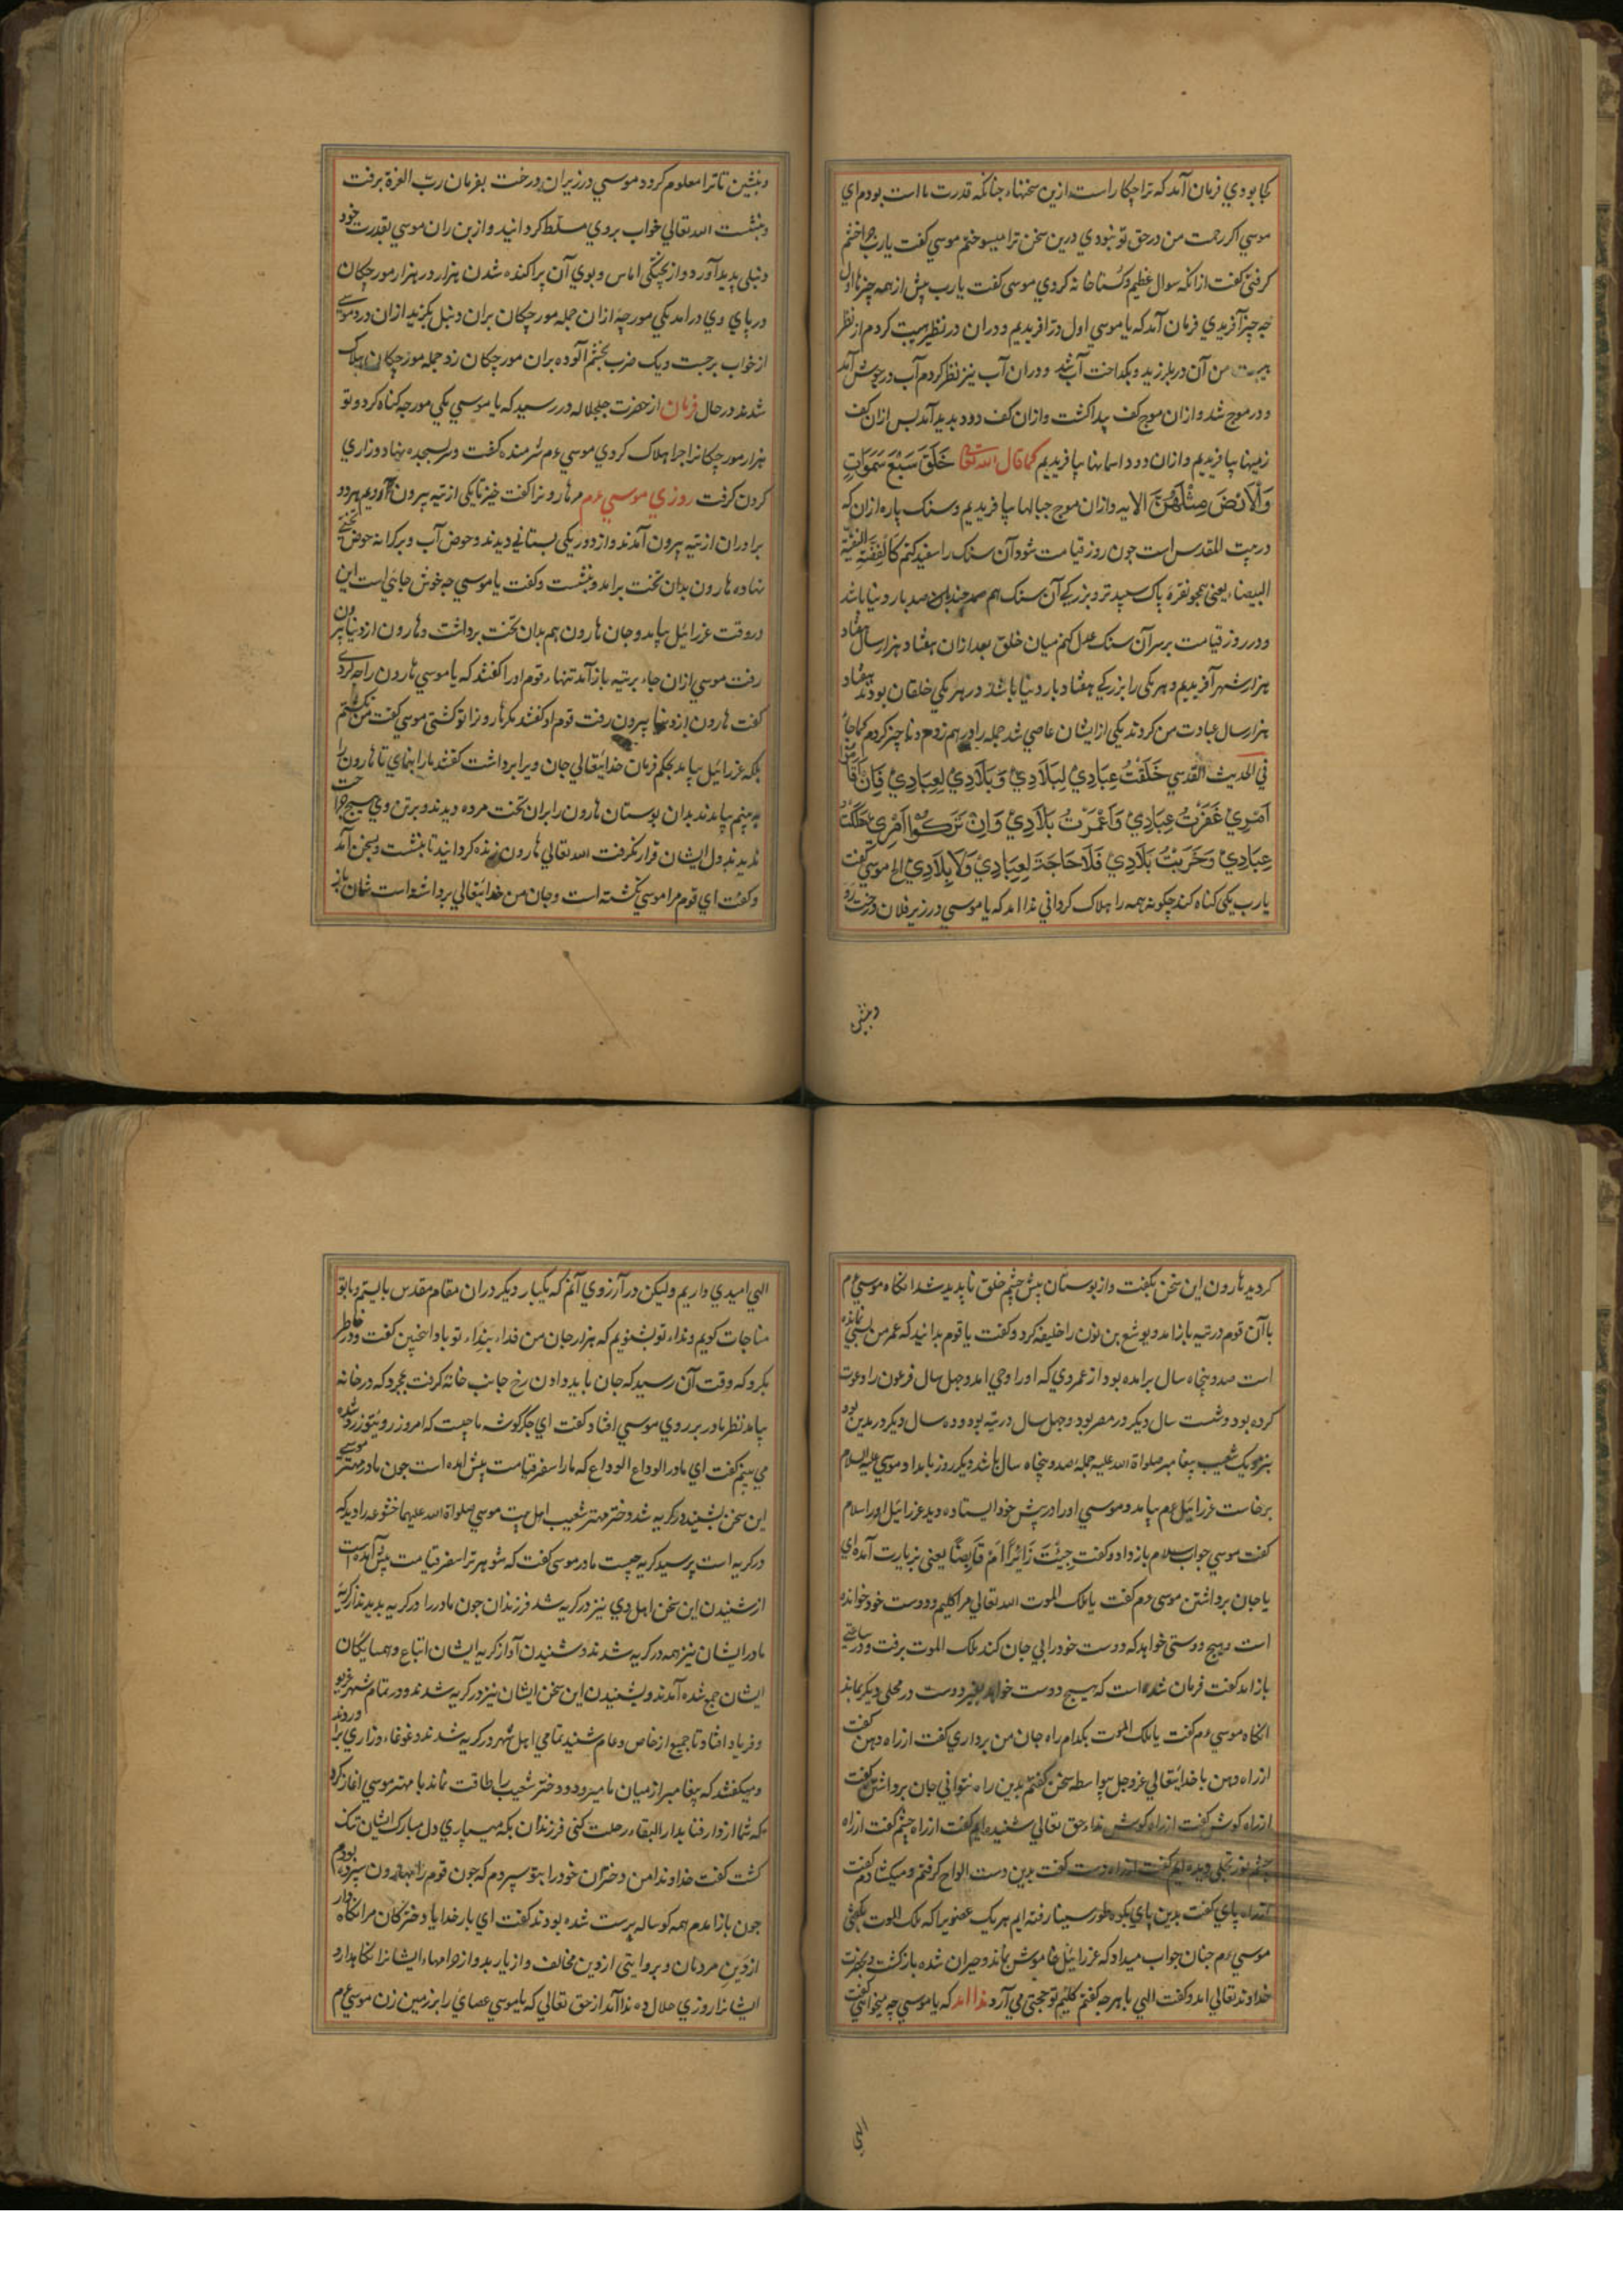 کجا بودي فرمان آمد که ترا چکار است ازین سخنهاء جنانکه قدرت ما است بودم اي
موسي اکر رحمت من در حق تو نبودي درین سخن ترا میسوختم موسي کفت یا رب جرا خشم
کرفتي کفت ازانکه سوال عظیم و کستاخانه کردي موسی کفت یا رب پیش از همه چیزها اول
چه چیز آفریدي فرمان آمد که یا موسي اول در افریدیم و دران در نظر هیبت کردم از نظر
هیبت من آن در بلرزید و بکداخت آب شد و دران آب نیز نظر کردم آب در جوش آمد
و در موج شد و ازان موج کف پیدا کشت و ازان کف دود بدید آمد بس ازان کف
زمینها بیافریدیم و ازان دود اسمانها بیافریدیم کما قال الله تعالی خَلَقَ سَبْعَ سَمَوَاتٍ
وَالْاَرْضَ مِثْلَهُنَّ الایه و ازان موج جبالها بیافریدیم و سنک پاره ازان که
در بیت المقدس است جون روز قیامت شود آن سنک را سفید کنم کَالْفِضَّةِ النقیّة
البیضاء یعنی همجو نقره پاک سپید تر و بزرکي آن سنک هم صد جندان صد بار دنیا باشد
و در روز قیامت بر سر آن سنک عدل کنم میان خلق بعد ازان هفتاد هزار سال هفتاد
هزار شهر آفریدیم و هر یکی را بزرکي هفتاد بار دنیا باشد و در هر یکي خلقان بودند هفتاد
هزار سال عبادت من کردند یکی از ایشان عاصي شد جمله را در هم زدم و ناچیز کردم کما جاء
في الحدیث القدسي خَلَقْتُ عِبَادِيْ لِبَلَادِيْ وَ بَلَادِيْ لِعِبَادِيْ فَاِنْ قَامُوْا
اَمْرِيْ غَفَرْتُ عِبَادِيْ وَ اَعْمَرْتُ بَلَادِيْ وَ اِنْ تَرَكُوْا اَمْرِيْ هَلَكْتُ
عِبَادِيْ وَ خَرَبْتُ بَلَادِيْ فَلَا حَاجَةَ لِعِبَادِيْ وَلَا بِلَادِيْ الخ موسی کفت
یا رب یکی کناه کند چکونه همه را هلاک کرداني ندا امد که یا موسي در زیر فلان درخت رو
و بنشین
و بنشین تا ترا معلوم کردد موسي در زیر ان درخت بفرمان ربّ العزة برفت
و بنشست الله تعالي خواب بر وي مسلط کردانید و از بن ران موسي بقدرت خود
دنبلي پدید آورد و از پختکی اماس و بوي آن پراکنده شدن هزار در هزار مورچکان
در پاي وي درامد یکي مورچه ازان جمله مورچکان بران دنبل بکزید ازان درد موسي
از خواب برجست و یک ضرب بخشم آلوده بران مورچکان زد جمله مورچکان هلاک
شدند در حال فرمان از حضرت جلّ جلاله در رسید که یا موسي یکي مورچه کناه کرد و تو
هزار مورچکانرا جرا هلاک کردي موسي ءم شرمنده کشت و سر بسجده نهاد و زاري
کردن کرفت روزي موسي ءم مر هارونرا کفت خیز تا یکی از تیه بیرون آییم هر دو
برادران از تیه بیرون آمدند و از دور یکی بستاني دیدند و حوض آب و بر کرانه حوض تختي
نهاده هارون بدان تخت برامد و بنشست و کفت یا موسي چه خوش جائي است این
در وقت عزرائیل بیامد و جان هارون هم بدان تخت برداشت و هارون از دنیا بیرون
رفت موسي ازان جاء بر تیه باز آمد تنهاء قوم اورا کفتند که یا موسي هارون را چه کردي
کفت هارون از دنیا بیرون رفت قوم او کفتند مکر هارونرا تو کشتی موسي کفت من نکشتم
بلکه عزرائیل بیامد بحکم فرمان خدایتعالي جان ویرا برداشت کفتند مارا بنماي تا هارون را
به بینیم بیامدند بدان بوستان هارون را بران تخت مرده دیدند و بر تن وي هیچ جراحت
ندیدند دل ایشان قرار نکرفت الله تعالي هارون زنده کردانید تا بنشست و بسخن آمد
و کفت اي قوم مرا موسي نکشته است و جان من خدایتعالي برداشته است شمایان باز
کردید هارون این سخن بکفت و از بوستان پیش چشم خلق ناپدید شد انکاه موسي ءم
با آن قوم در تیه باز امد و یوشع بن نون را خلیفه کرد و کفت یا قوم بدانید که عمر من بسي نمانده
است صد و پنجاه سال برامده بود از عمر وي که اورا وحي امد و چهل سال فرعون را دعوت
کرده بود و شست سال دیکر در مصر بود و چهل سال در تیه بود و ده سال دیکر در مدین بود
بنزدیک شعیب پیغامبر صلواة الله علیه جمله صد و پنجاه سال باشد دیکر روز بامداد موسي علیه السلام
برخاست عزرائیل ءم بیامد و موسي اورا در پیش خود ایستاده دید عزرائیل اورا سلام
کفت موسي جواب سلام باز داد و کفت جِئْتَ زَائِرًا اَمْ قَابِضًا یعنی بزیارت آمده اي
یا جان برداشتن موسی ءم کفت یا ملک الموت الله تعالي مرا کلیم و دوست خود خوانده
است و هیچ دوستی خواهد که دوست خود را بي جان کند ملک الموت برفت و در ساعتي
باز امد کفت فرمان شده است که هیچ دوست خواهد بغیر دوست در محلي دیکر بماند
انکاه موسي ءم کفت یا ملک الموت بکدام راه جان من برداري کفت از راه دهن کفت
از راه دهن با خدایتعالي عزوجل بیواسطه سخن کفتم بدین راه نتواني جان برداشتن کفت
از راه کوش کفت از راه کوش نداء حق تعالي شنیده ایم کفت از راه چشم کفت از راه
چشم نور تجلی دیده ایم کفت از راه دست کفت بدین دست الواح کرفتم و میکشادم کفت
از راه پاي کفت بدین پاي بکوه طور سینا رفته ایم هر یک عضویرا که ملک الموت بکفتي
موسي ءم جنان جواب میداد که عزرائیل خاموش بماند و حیران شده باز کشت و بحضرت
خداوند تعالي امد و کفت الهي با هر چه کفتم کلیم تو حجتي مي آرد ندا امد که یا موسي چه میخواهي کفت
الهي
الهي امیدي داریم ولیکن در آرزوي آنم که یکبار دیکر دران مقام مقدس بایستم و با تو
مناجات کویم و نداء تو بشنویم که هزار جان من فداء بنداء تو باد اینچنین کفت و در خاطر
بکرد که وقت آن رسید که جان باید دادن رخ جانب خانه کرفت بمجرد که در خانه
بیامد نظر مادر بر روي موسي افتاد کفت اي جکر کوشه ما چیست که امروز روي تو زرد شده
مي بینم کفت اي مادر الوداع الوداع که مارا سفر قیامت پیش امده است جون مادر مهتر موسي
این سخن بشنید در کریه شد و دختر مهتر شعیب اهل بیت موسي صلواة الله علیهما خشوعه را دید که
در کریه است پرسید کریه چیست مادر موسی کفت که شوهر ترا سفر قیامت پیش آمده است
از شنیدن این سخن اهل وي نیز در کریه شد فرزندان جون مادر را در کریه بدیدند از کریه
مادر ایشان نیز همه در کریه شدند و شنیدن آواز کریه ایشان اتباع و همسایکان
ایشان جمع شده آمدند و بشنیدن این سخن ایشان نیز در کریه شدند و در تمام شهر غریو
و فریاد افتاد تا جمیع از خاص و عام شنید تمامي اهل شهر در کریه شدند و غوغاء و زاري براوردند
و میکفتند که پیغامبر از میان ما میرود و دختر شعیب را طاقت نماند با مهتر موسي اغاز کرد
که شما از دار فنا بدار البقاء رحلت کنی فرزندان بکه میسپاري دل مبارک ایشان تنک
کشت کفت خداوندا من دختران خود را بتو سپردم که جون قوم را بهارون سپرده بودم
جون باز امدم همه کوساله پرست شده بودند کفت اي بار خدایا دخترکان مرا نکاه دار
از دین مردمان و بروایتي از دین مخالف و از یار بد و از دامهاء ایشانرا نکاهدار و
ایشانرا روزي حلال ده ندا آمد از حق تعالي که یا موسي عصاي را بر زمین زن موسي ءم